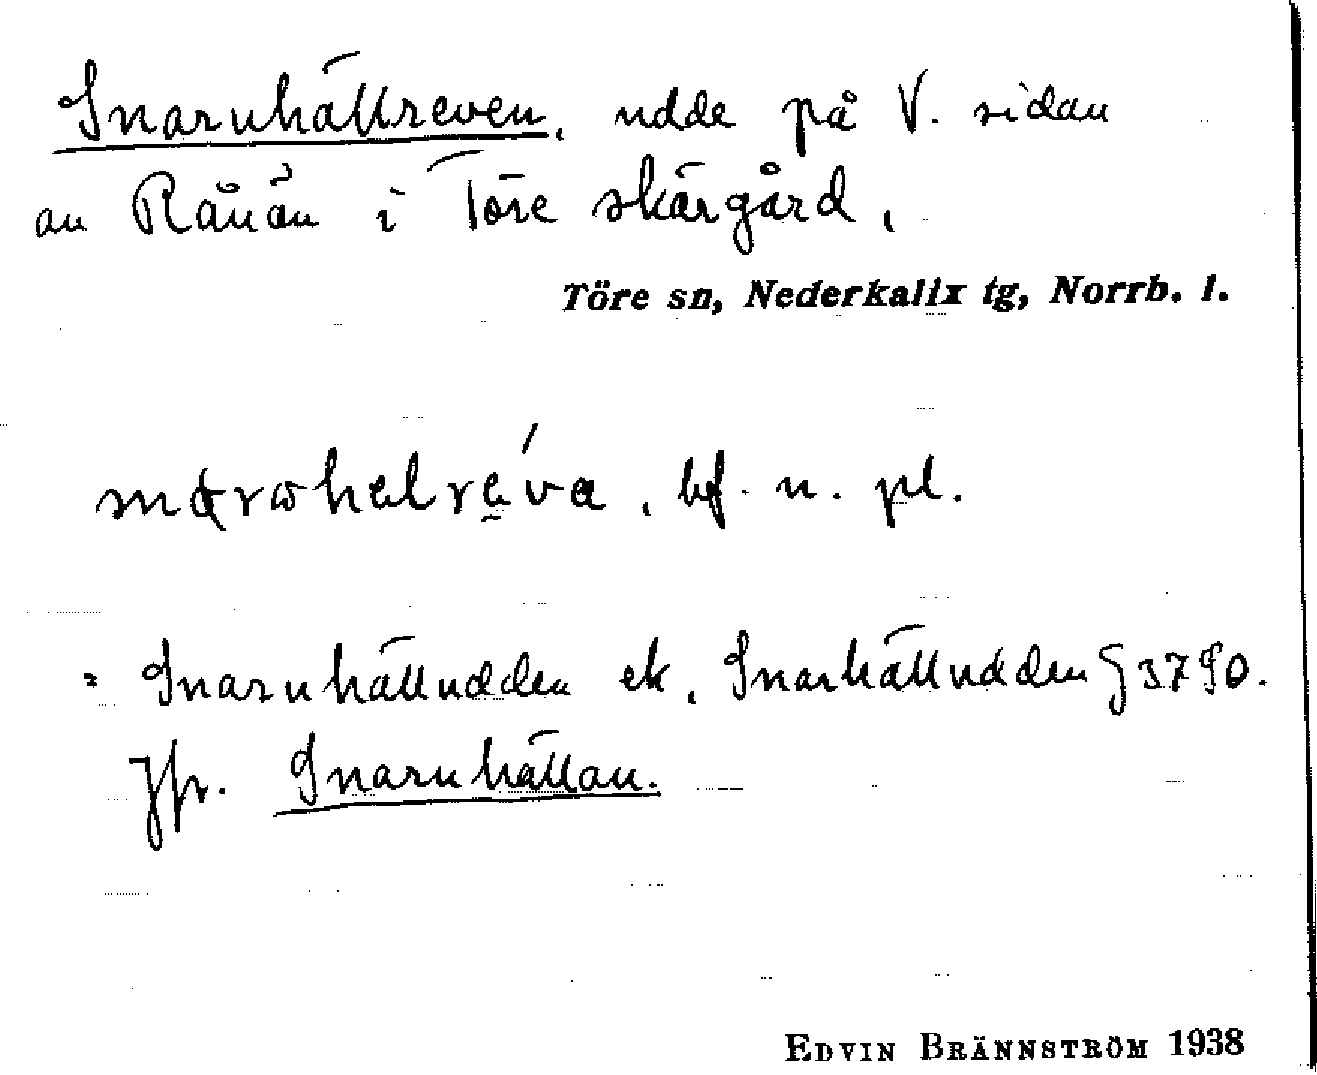 Snarnhällreven, udde på V. sidan
av Rånön i Töre skärgård.
Töre sn, Nederkalix tg, Norrb. l.
bf. n. pl.
= Snarnhälludden ek. Snarhälludden
Jfr. Snarnhällan.
EDVIN BRÄNNSTRÖM 1938